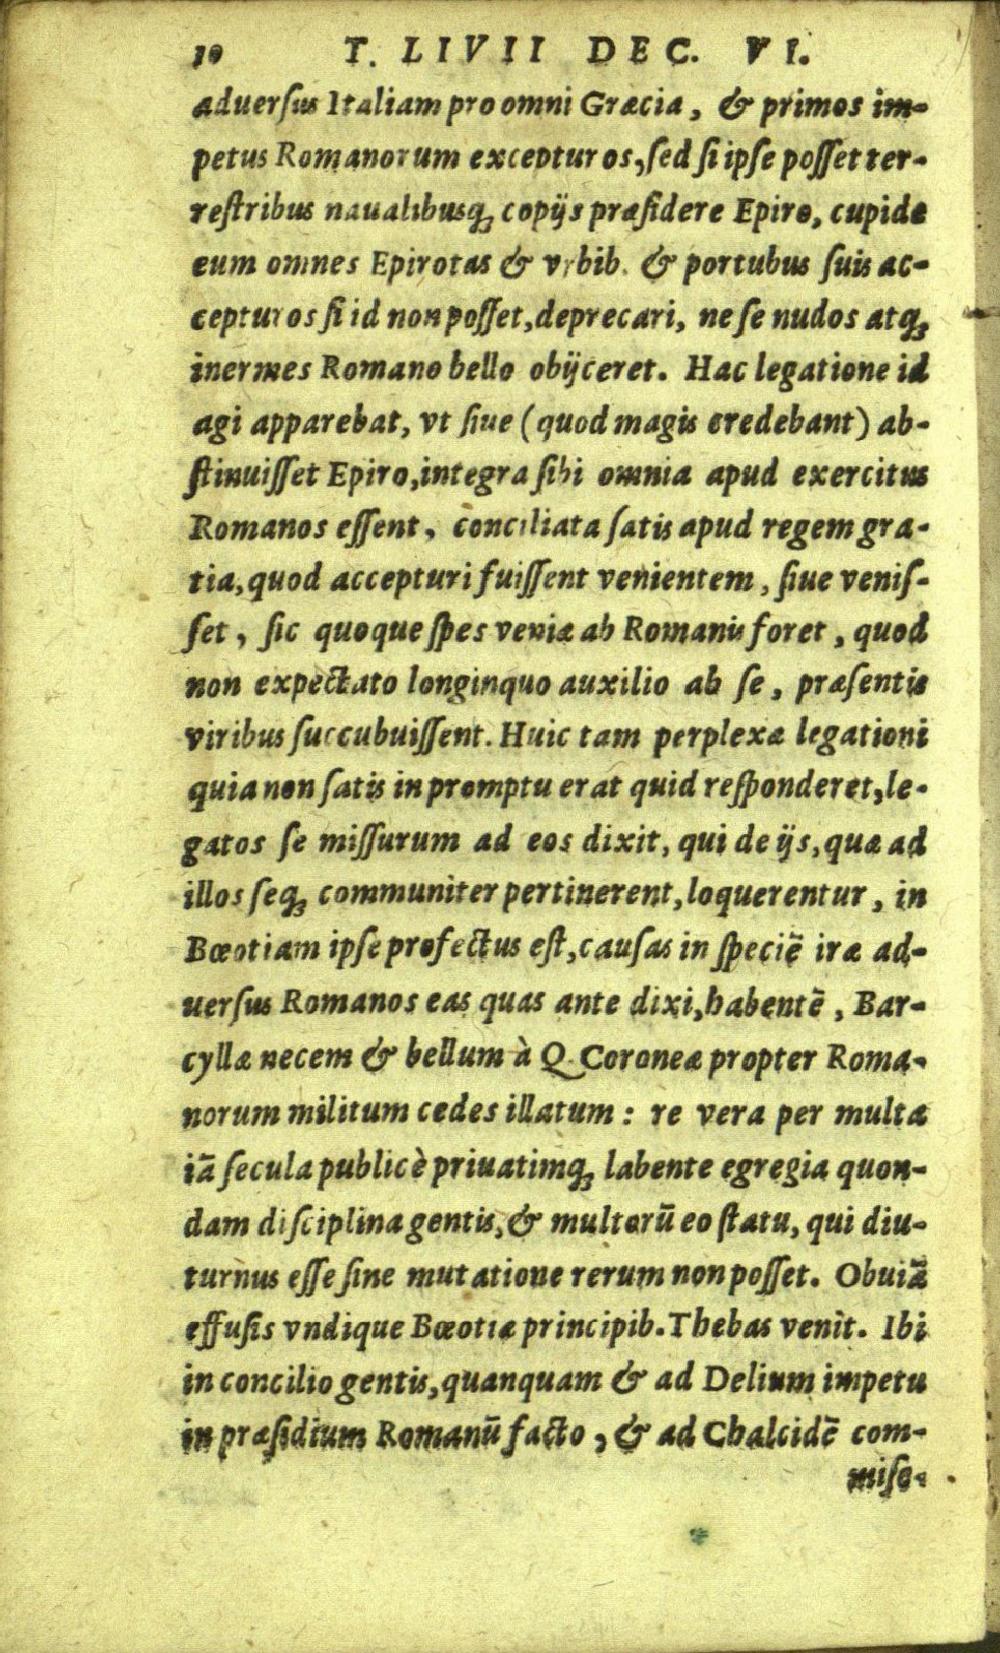 10 T. LIVII DEC. VI.
aduerſus Italiam pro omni Græcia, & primos im-
petus Romanorum excepturos, ſed ſi ipſe poſſet ter-
reſtribus naualibusq́; copijs præſidere Epiro, cupide
eum omnes Epirotas & vrbib. & portubus ſuis ac-
cepturos ſi id non poſſet, deprecari, ne ſe nudos atq́;
inermes Romano bello obijceret. Hac legatione id
agi apparebat, vt ſiue (quod magis credebant) ab-
ſtinuiſſet Epiro, integra ſibi omnia apud exercitus
Romanos eſſent, conciliata ſatis apud regem gra-
tia, quod accepturi fuiſſent venientem, ſiue veniſ-
ſet, ſic quoque ſpes veniæ ab Romanis foret, quod
non expectato longinquo auxilio ab ſe, præſentis
viribus ſuccubuiſſent. Huic tam perplexæ legationi
quia non ſatis in promptu erat quid reſponderet, le-
gatos ſe miſſurum ad eos dixit, qui de ijs, quæ ad
illos ſeq́; communiter pertinerent, loquerentur, in
Bœotiam ipſe profectus eſt, cauſas in ſpeciē iræ ad-
uerſus Romanos eas quas ante dixi, habentē, Bar-
cyllæ necem & bellum à Q. Coroneæ propter Roma-
norum militum cedes illatum: re vera per multa
iā ſecula publicè priuatimq́; labente egregia quon-
dam diſciplina gentis, & multorū eo ſtatu, qui diu-
turnus eſſe ſine mutatione rerum non poſſet. Obuiā
effuſis vndique Bœotiæ principib. Thebas venit. Ibi
in concilio gentis, quanquam & ad Delium impetu
in præſidium Romanū facto, & ad Chalcidē com-
miſo-